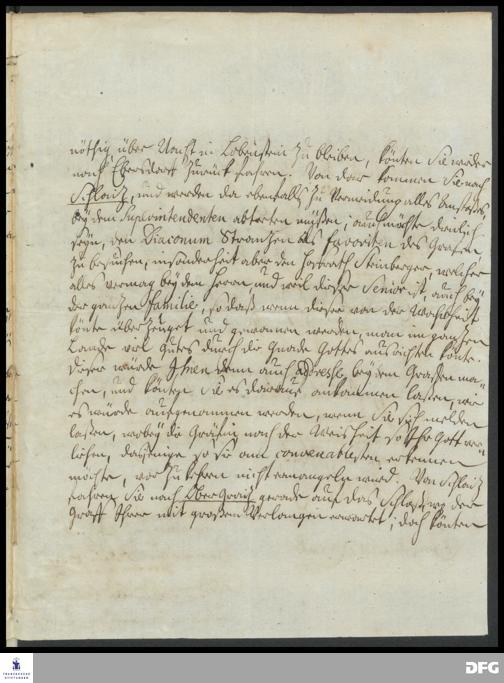 nöthig über Nacht in Lobenstein zu bleiben, könten Sie wieder
nach Ebersdorff zurück fahren. Von dar kommen Sie nach
Schlaitz, und werden da ebenfalls zu Vermeidung alles Anstoßes,
bey dem Superintendenten abtreten müßen; auch möchte dienlich
seyn, den Diaconum Strantzen als Favoriten des Grafen
zu besuchen, insonderheit aber den Hoffrath Steinberger, welcher
alles vermag bey dem Herrn, und weil dieser Senior ist, auch bey
der gantzen Familie, so daß wenn dieser von der Wahrheit
könte überzeuget und gewonnen werden, man im gantzen
Lande viel Gutes durch die Gnade Gottes ausrichten könte.
Dieser würde Ihnen denn auch Adresse bey dem Grafen ma-
chen, und könten Sie es darauf ankommen laßen, wie
es würde aufgenommen werden, wenn Sie sich melden
laßen, wobey die Gräfin nach der Weisheit so Ihr Gott ver-
liehen, dasjenige so sie am convenablesten erkennen
möchte, vorzukehren nicht ermangeln wird. Von Schlaitz
fahren Sie nach Ober Graitz gerade auf das Schloß, wo der
Graff Ihrer mit großem Verlangen erwartet; doch könten
FRANCKESCHE
STIFTUNGEN
DFG